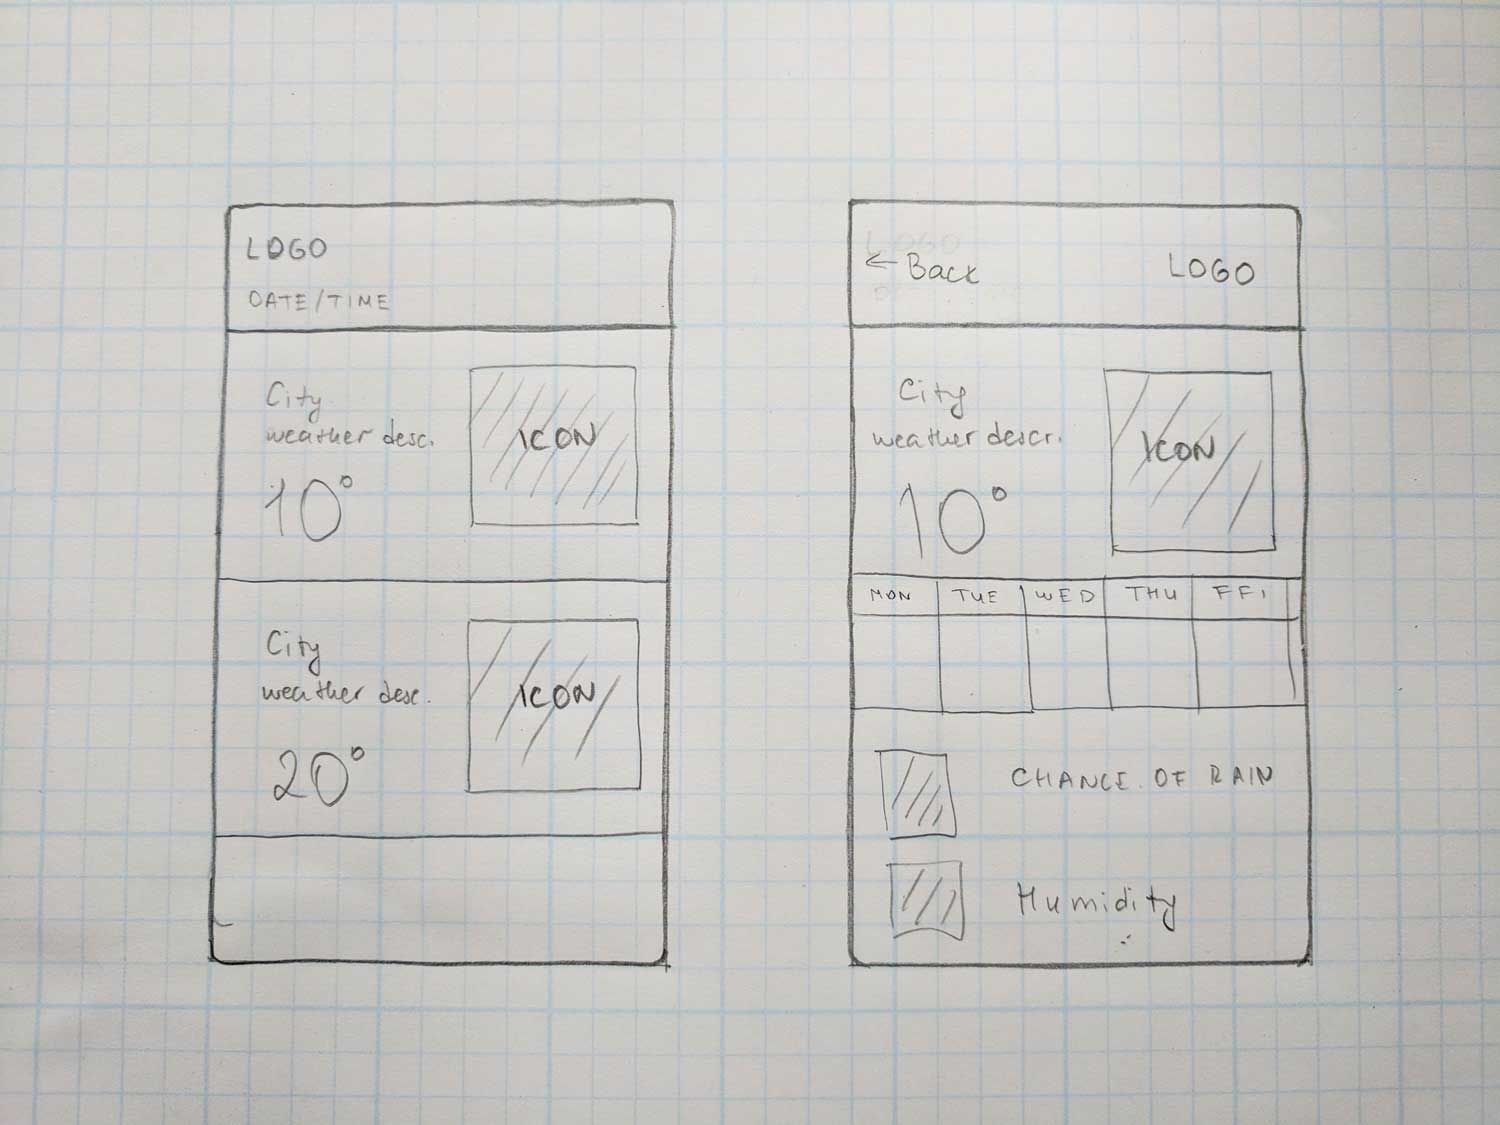 LOGO
DATE/TIME
City
weather desc.
10°
ICON
City
weather desc.
20°
ICON
← Back
LOGO
City
weather descr.
10°
ICON
MON TUE WED THU FFI
CHANCE OF RAIN
Humidity